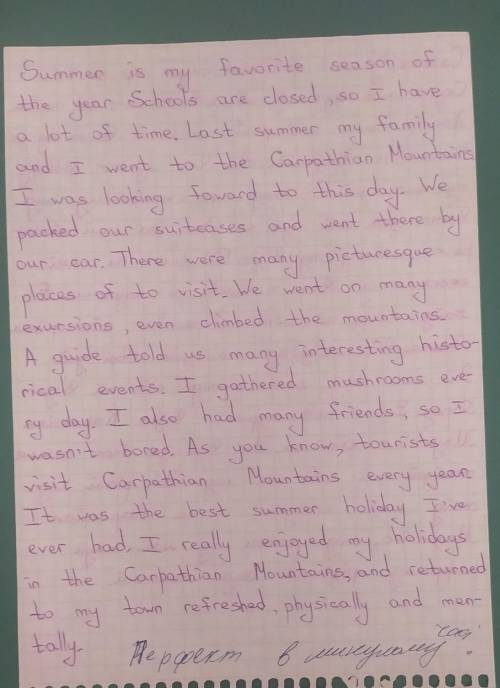 Summer is my favorite season of
the year Schools are closed, so I have
a lot of time. Last summer my family
and I went to the Carpathian Mountains
I was looking foward to this day. We
packed our suitcases and went there by
our car. There were many picturesque
places of to visit. We went on many
exursions, even climbed the mountains.
A guide told us many interesting histo-
rical events. I gathered mushrooms eve-
ry day. I also had many friends, so I
wasn't bored. As you know, tourists
visit Carpathian Mountains every year.
It was the best summer holiday I've
ever had. I really enjoyed my holidays
in the Carpathian Mountains, and returned
to my town refreshed, physically and men-
tally.
Перфект в минулому часі!